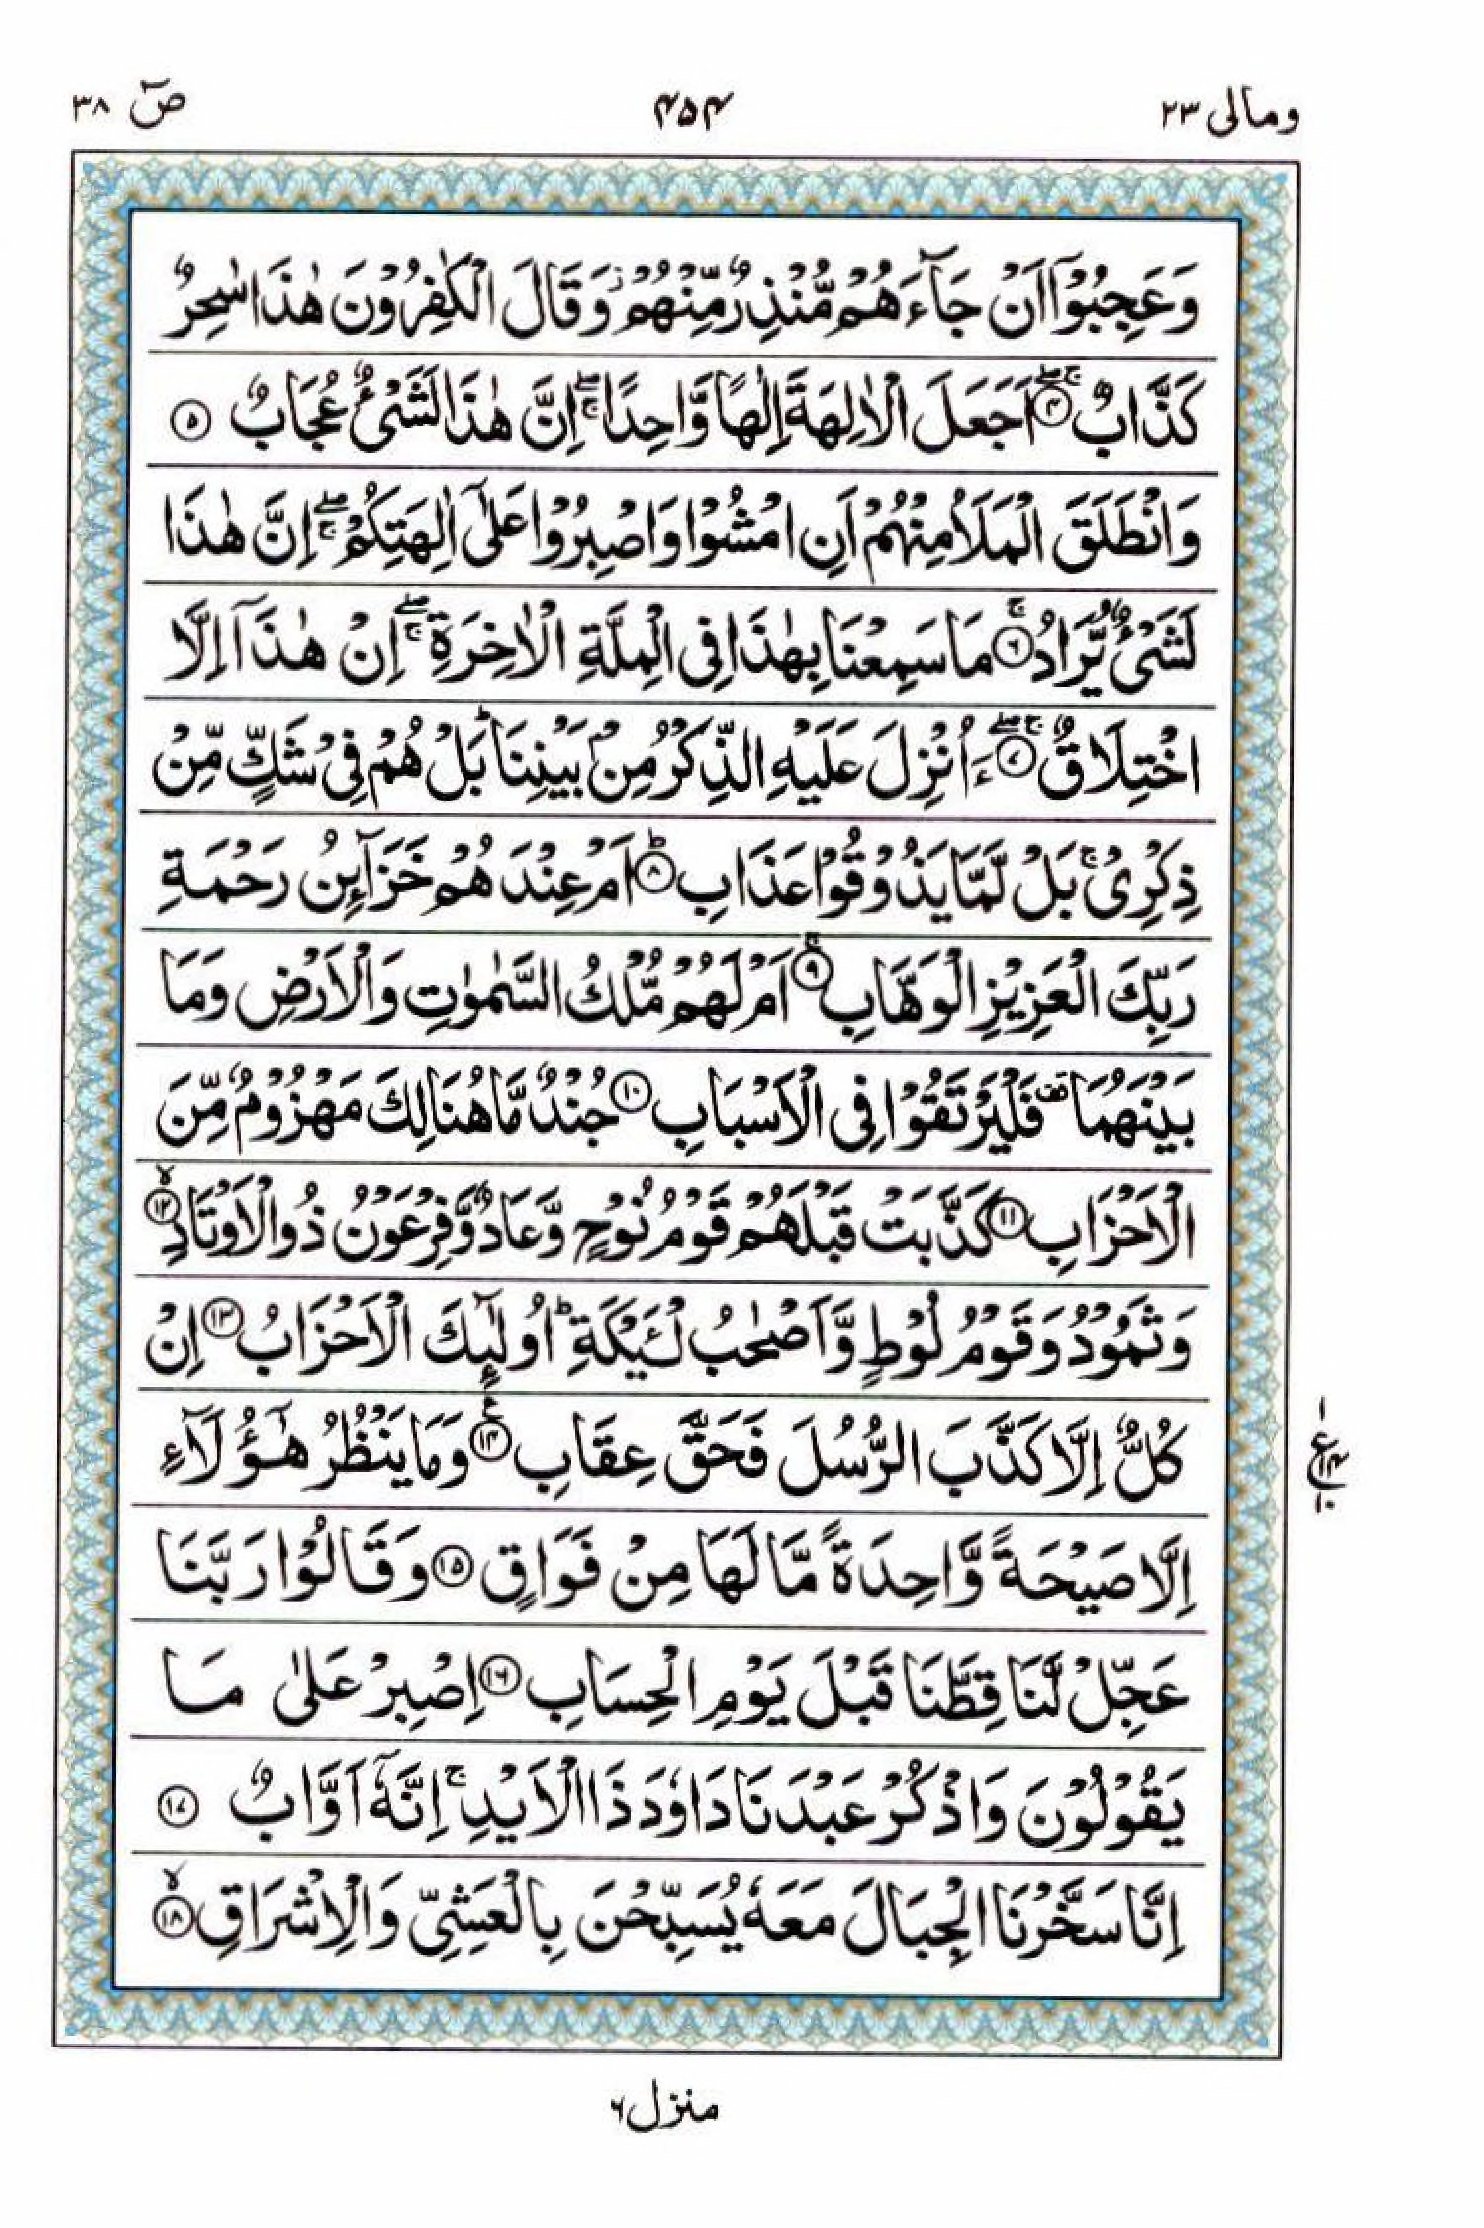 ومالی ۲۳
۴۵۴
صٓ ۳۸
وَعَجِبُوْۤا اَنْ جَآءَهُمْ مُّنْذِرٌ مِّنْهُمْ ز وَقَالَ الْكٰفِرُوْنَ هٰذَا سٰحِرٌ
كَذَّابٌ ۚۖ ۴ اَجَعَلَ الْاٰلِهَةَ اِلٰهًا وَّاحِدًا ۚۖ اِنَّ هٰذَا لَشَیْءٌ عُجَابٌ ۵
وَانْطَلَقَ الْمَلَاُ مِنْهُمْ اَنِ امْشُوْا وَاصْبِرُوْا عَلٰۤی اٰلِهَتِكُمْ ۚۖ اِنَّ هٰذَا
لَشَیْءٌ یُّرَادُ ۚ ۶ مَا سَمِعْنَا بِهٰذَا فِی الْمِلَّةِ الْاٰخِرَةِ ۚۖ اِنْ هٰذَاۤ اِلَّا
اخْتِلَاقٌ ۚۖ ۷ ءَاُنْزِلَ عَلَیْهِ الذِّكْرُ مِنْۢ بَیْنِنَا ؕ بَلْ هُمْ فِیْ شَكٍّ مِّنْ
ذِكْرِیْ ۚ بَلْ لَّمَّا یَذُوْقُوْا عَذَابِ ؕ ۸ اَمْ عِنْدَهُمْ خَزَآىِٕنُ رَحْمَةِ
رَبِّكَ الْعَزِیْزِ الْوَهَّابِ ۚ ۹ اَمْ لَهُمْ مُّلْكُ السَّمٰوٰتِ وَالْاَرْضِ وَمَا
بَیْنَهُمَا قف فَلْیَرْتَقُوْا فِی الْاَسْبَابِ ۱۰ جُنْدٌ مَّا هُنَالِكَ مَهْزُوْمٌ مِّنَ
الْاَحْزَابِ ۱۱ كَذَّبَتْ قَبْلَهُمْ قَوْمُ نُوْحٍ وَّعَادٌ وَّفِرْعَوْنُ ذُو الْاَوْتَادِ ۙ ۱۲
وَثَمُوْدُ وَقَوْمُ لُوْطٍ وَّاَصْحٰبُ لْـَٔیْكَةِ ؕ اُولٰٓىِٕكَ الْاَحْزَابُ ۱۳ اِنْ
كُلٌّ اِلَّا كَذَّبَ الرُّسُلَ فَحَقَّ عِقَابِ ۱۴ ع وَمَا یَنْظُرُ هٰۤؤُلَآءِ
اِلَّا صَیْحَةً وَّاحِدَةً مَّا لَهَا مِنْ فَوَاقٍ ۱۵ وَقَالُوْا رَبَّنَا
عَجِّلْ لَّنَا قِطَّنَا قَبْلَ یَوْمِ الْحِسَابِ ۱۶ اِصْبِرْ عَلٰی مَا
یَقُوْلُوْنَ وَاذْكُرْ عَبْدَنَا دَاوٗدَ ذَا الْاَیْدِ ۚ اِنَّهٗۤ اَوَّابٌ ۱۷
اِنَّا سَخَّرْنَا الْجِبَالَ مَعَهٗ یُسَبِّحْنَ بِالْعَشِیِّ وَالْاِشْرَاقِ ۙ ۱۸
۱
ع ۱۴
۱۰
منزل ۶